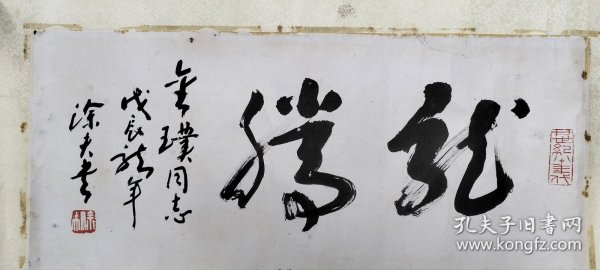 龙腾
金璞同志
戊辰龙年
孔夫子旧书网
www.kongfz.com